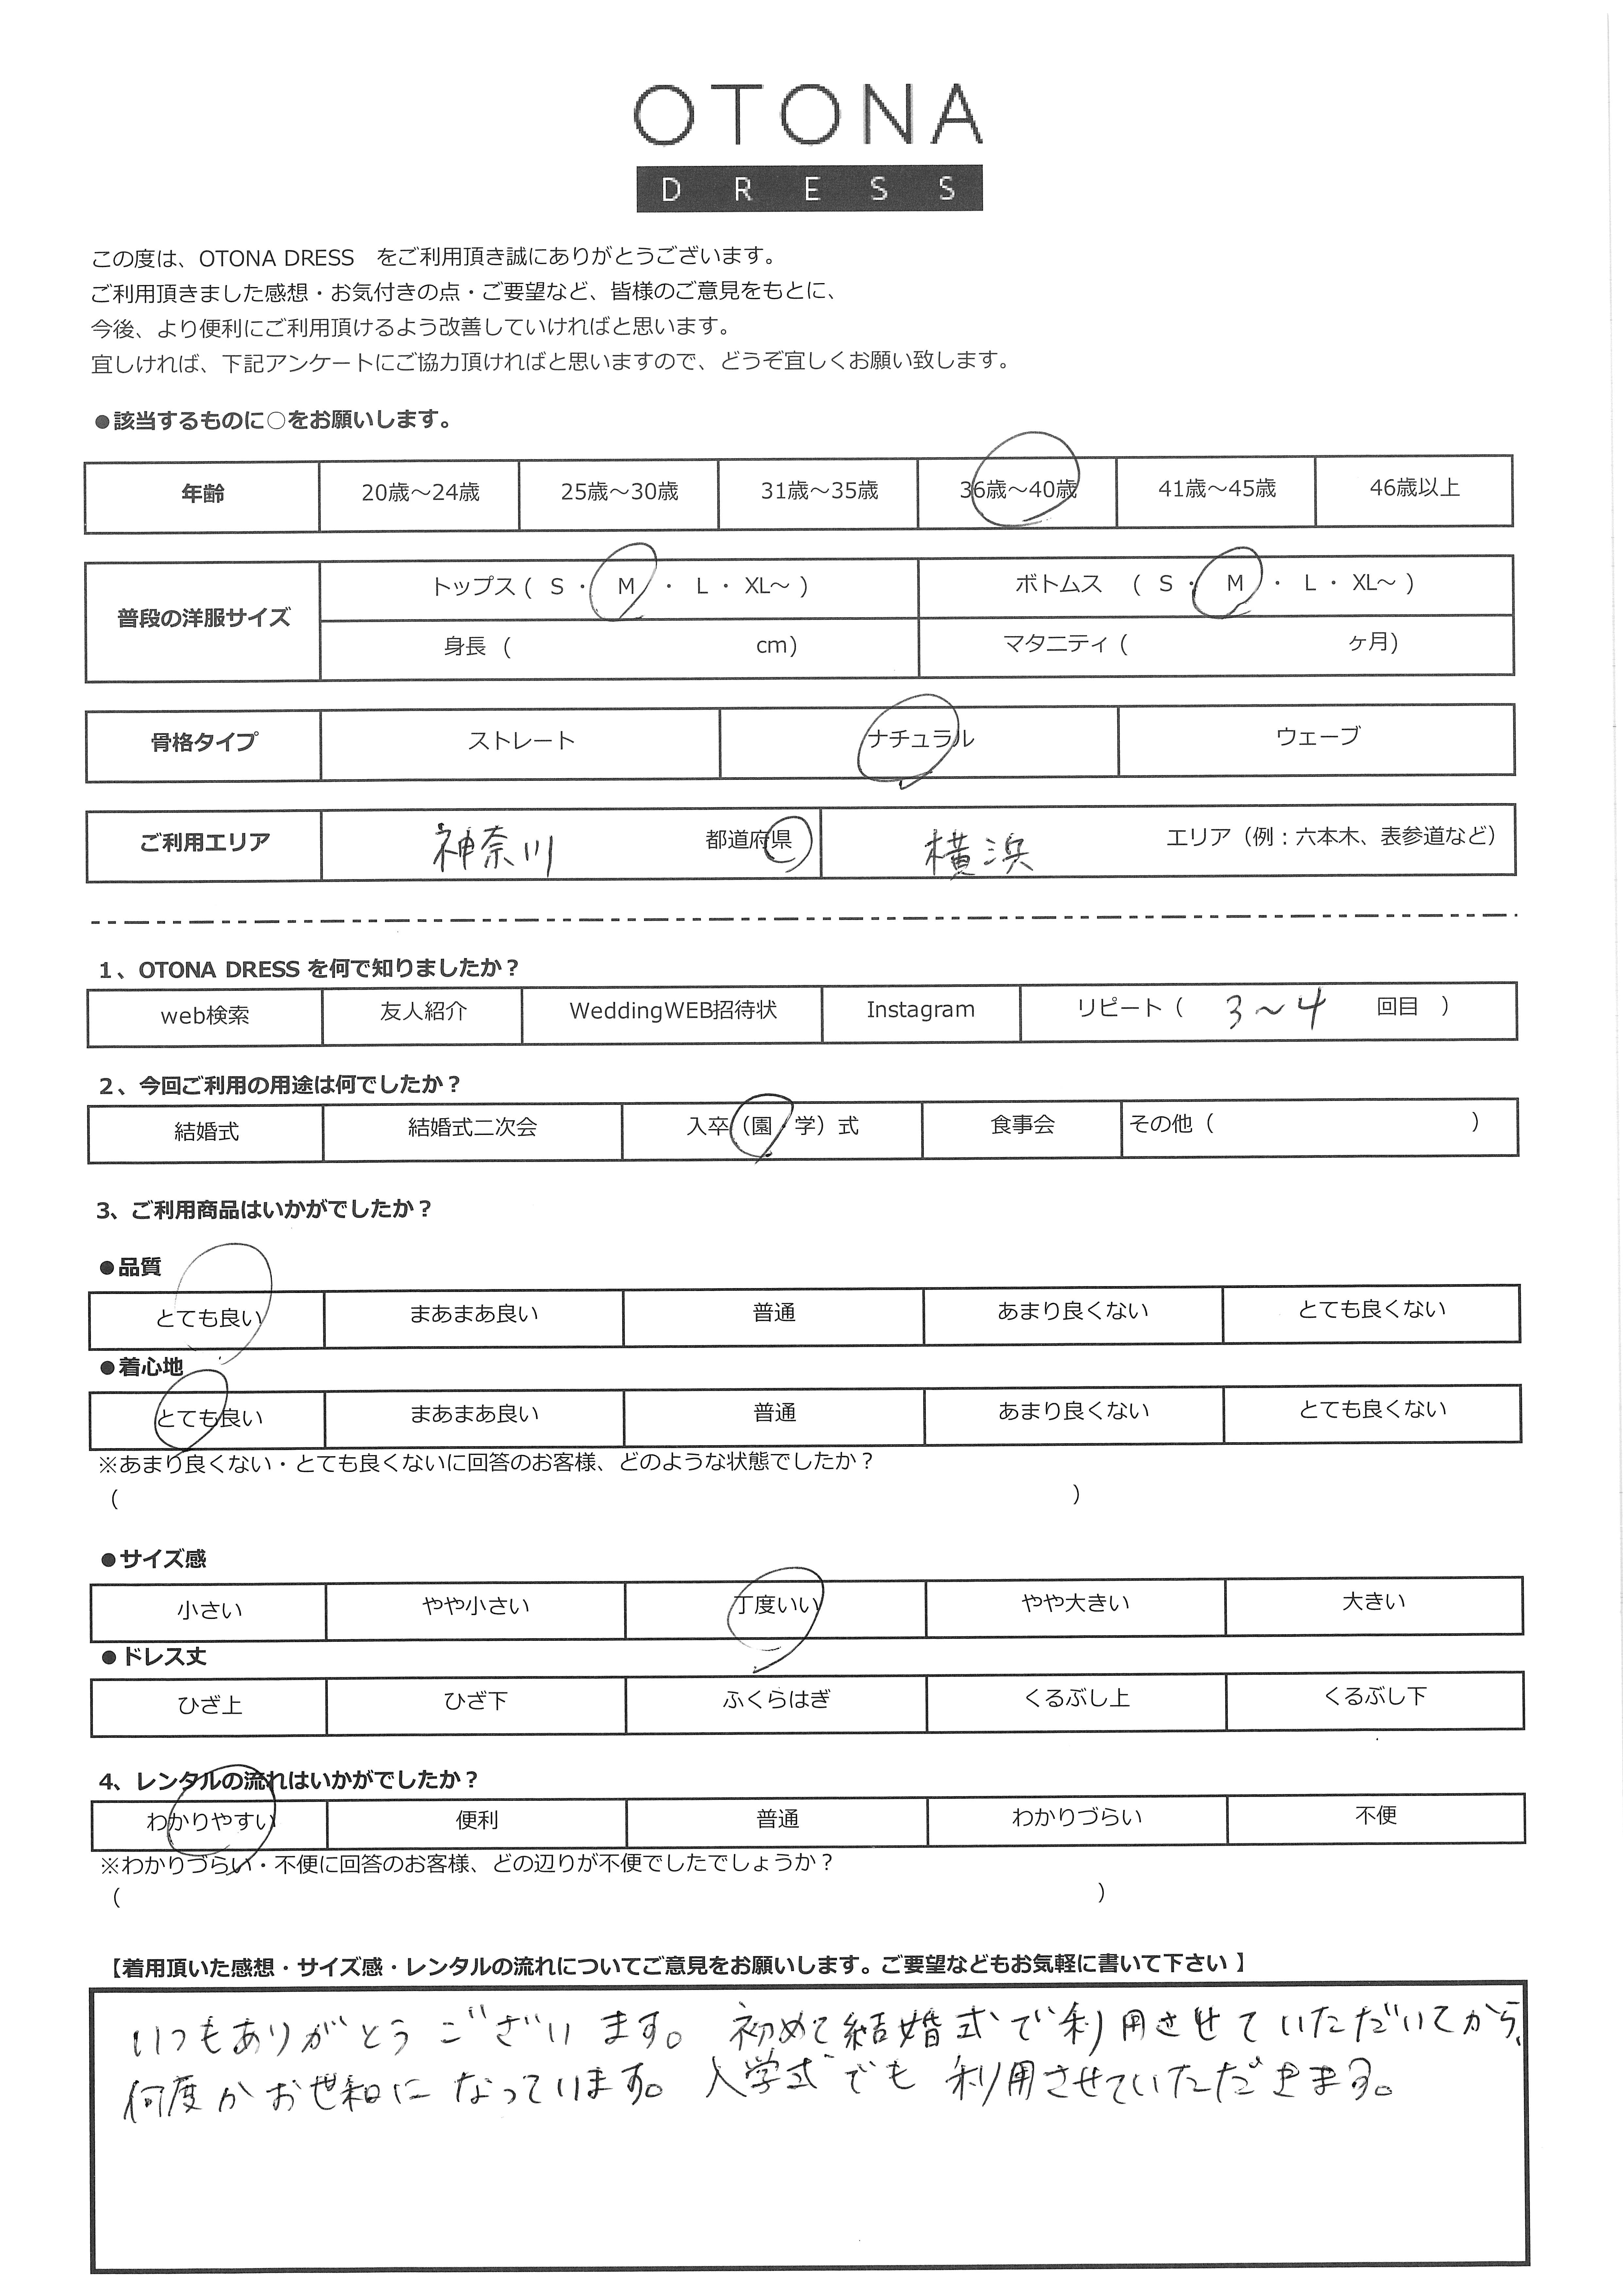 OTONA
DRESS
この度は、OTONA DRESS　をご利用頂き誠にありがとうございます。
ご利用頂きました感想・お気付きの点・ご要望など、皆様のご意見をもとに、
今後、より便利にご利用頂けるよう改善していければと思います。
宜しければ、下記アンケートにご協力頂ければと思いますので、どうぞ宜しくお願い致します。
●該当するものに○をお願いします。
年齢 20歳～24歳 25歳～30歳 31歳～35歳 36歳～40歳 41歳～45歳 46歳以上
普段の洋服サイズ トップス ( S ・ M ・ L ・ XL～ ) ボトムス ( S ・ M ・ L ・ XL～ )
身長 ( cm) マタニティ ( ヶ月)
骨格タイプ ストレート ナチュラル ウェーブ
ご利用エリア 神奈川 都道府県 横浜 エリア（例：六本木、表参道など）
1、OTONA DRESS を何で知りましたか？
web検索 友人紹介 WeddingWEB招待状 Instagram リピート（ 3～4 回目 ）
2、今回ご利用の用途は何でしたか？
結婚式 結婚式二次会 入卒（園・学）式 食事会 その他（ ）
3、ご利用商品はいかがでしたか？
●品質
とても良い まあまあ良い 普通 あまり良くない とても良くない
●着心地
とても良い まあまあ良い 普通 あまり良くない とても良くない
※あまり良くない・とても良くないに回答のお客様、どのような状態でしたか？
（ ）
●サイズ感
小さい やや小さい 丁度いい やや大きい 大きい
●ドレス丈
ひざ上 ひざ下 ふくらはぎ くるぶし上 くるぶし下
4、レンタルの流れはいかがでしたか？
わかりやすい 便利 普通 わかりづらい 不便
※わかりづらい・不便に回答のお客様、どの辺りが不便でしたでしょうか？
（ ）
【着用頂いた感想・サイズ感・レンタルの流れについてご意見をお願いします。ご要望などもお気軽に書いて下さい 】
いつもありがとうございます。初めて結婚式で利用させていただいてから、
何度かお世和になっています。入学式でも利用させていただきます。